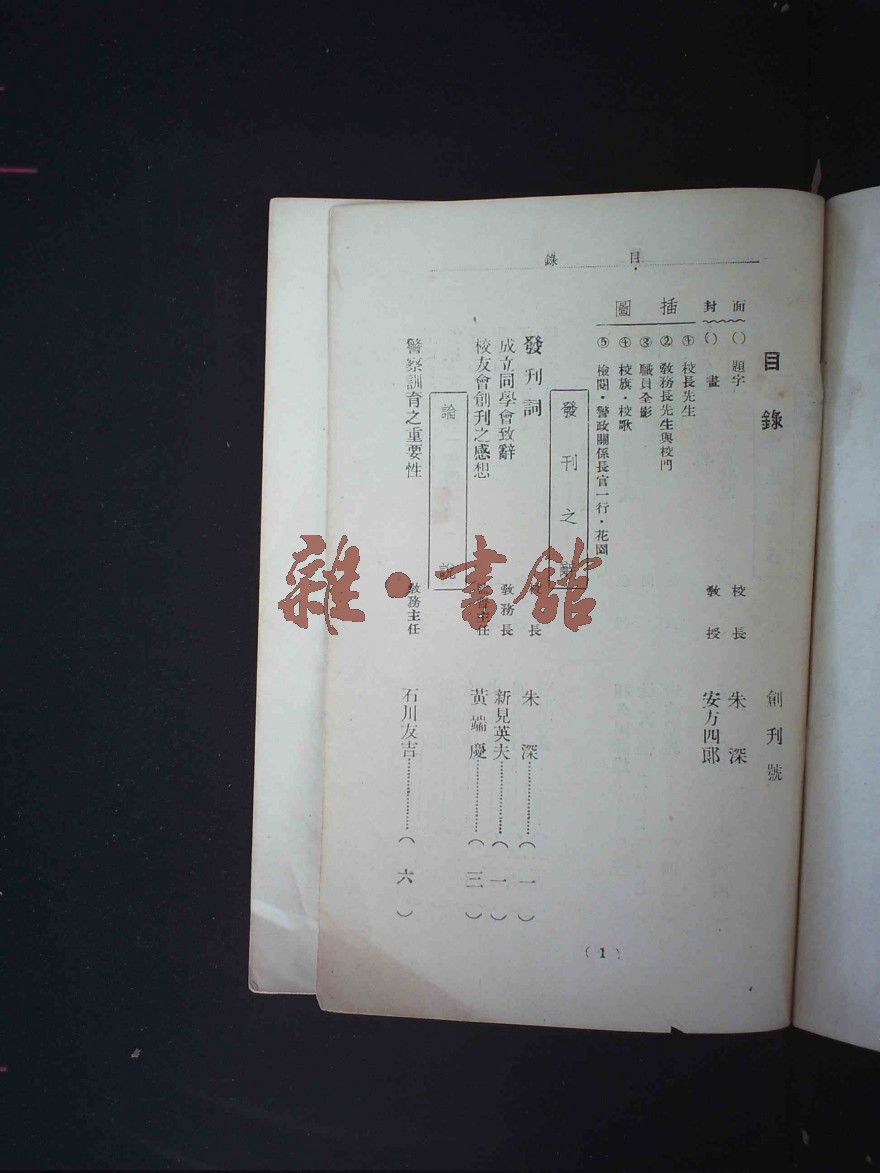 目錄
目錄 創刊號
封面
() 題字 校長 朱深
() 畫 教授 安方四郎
插圖
① 校長先生
② 敎務長先生與校門
③ 職員全影
④ 校旗・校歌
⑤ 檢閱・警政關係長官一行・花園
發刊之辭
發刊詞 校長 朱深………(一)
成立同學會致辭 敎務長 新見英夫………(一)
校友會創刊之感想 主任 黃端慶………(三)
論說
警察訓育之重要性 敎務主任 石川友吉………(六)
(1)
雜・書館